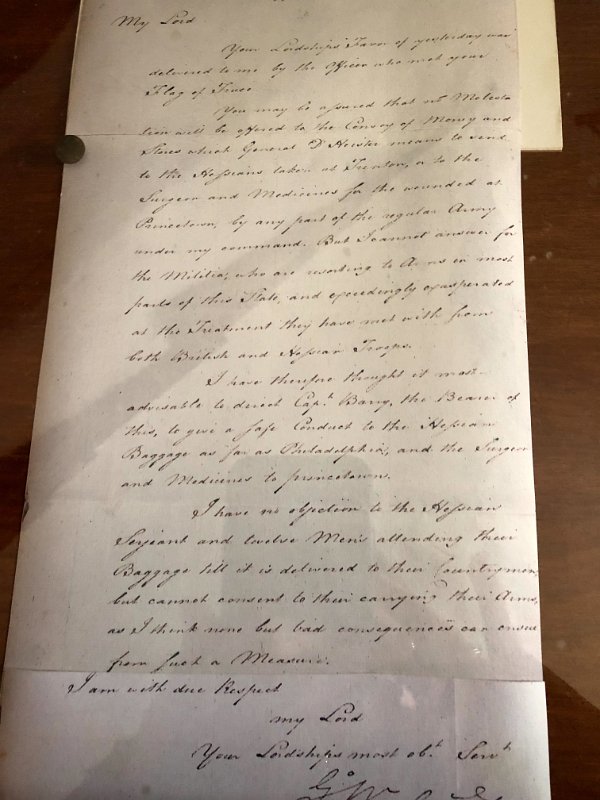 My Lord
Your Lordships Favor of yesterday was
delivered to me by the Officer who met your
Flag of Truce
You may be assured that no Molesta
tion will be offered to the Convoy of Money and
Stores which General D'Heister means to send
to the Hessians taken at Trenton, or to the
Surgeon and Medicines for the wounded at
Princetown, by any part of the regular Army
under my command. But I cannot answer for
the Militia, who are resorting to Arms in most
parts of this State, and exceedingly exasperated
at the Treatment they have met with from
both British and Hessian Troops.
I have therefore thought it most
advisable to direct Capt. Barry, the Bearer of
this, to give a safe Conduct to the Hessian
Baggage as far as Philadelphia, and the Surgeon
and Medicines to princetown.
I have no objection to the Hessian
Serjeant and twelve Men's attending their
Baggage till it is delivered to their Countrymen,
but cannot consent to their carrying their Arms,
as I think none but bad consequences can ensue
from such a Measure.
I am with due Respect
my Lord
Your Lordships most obt. Servt.